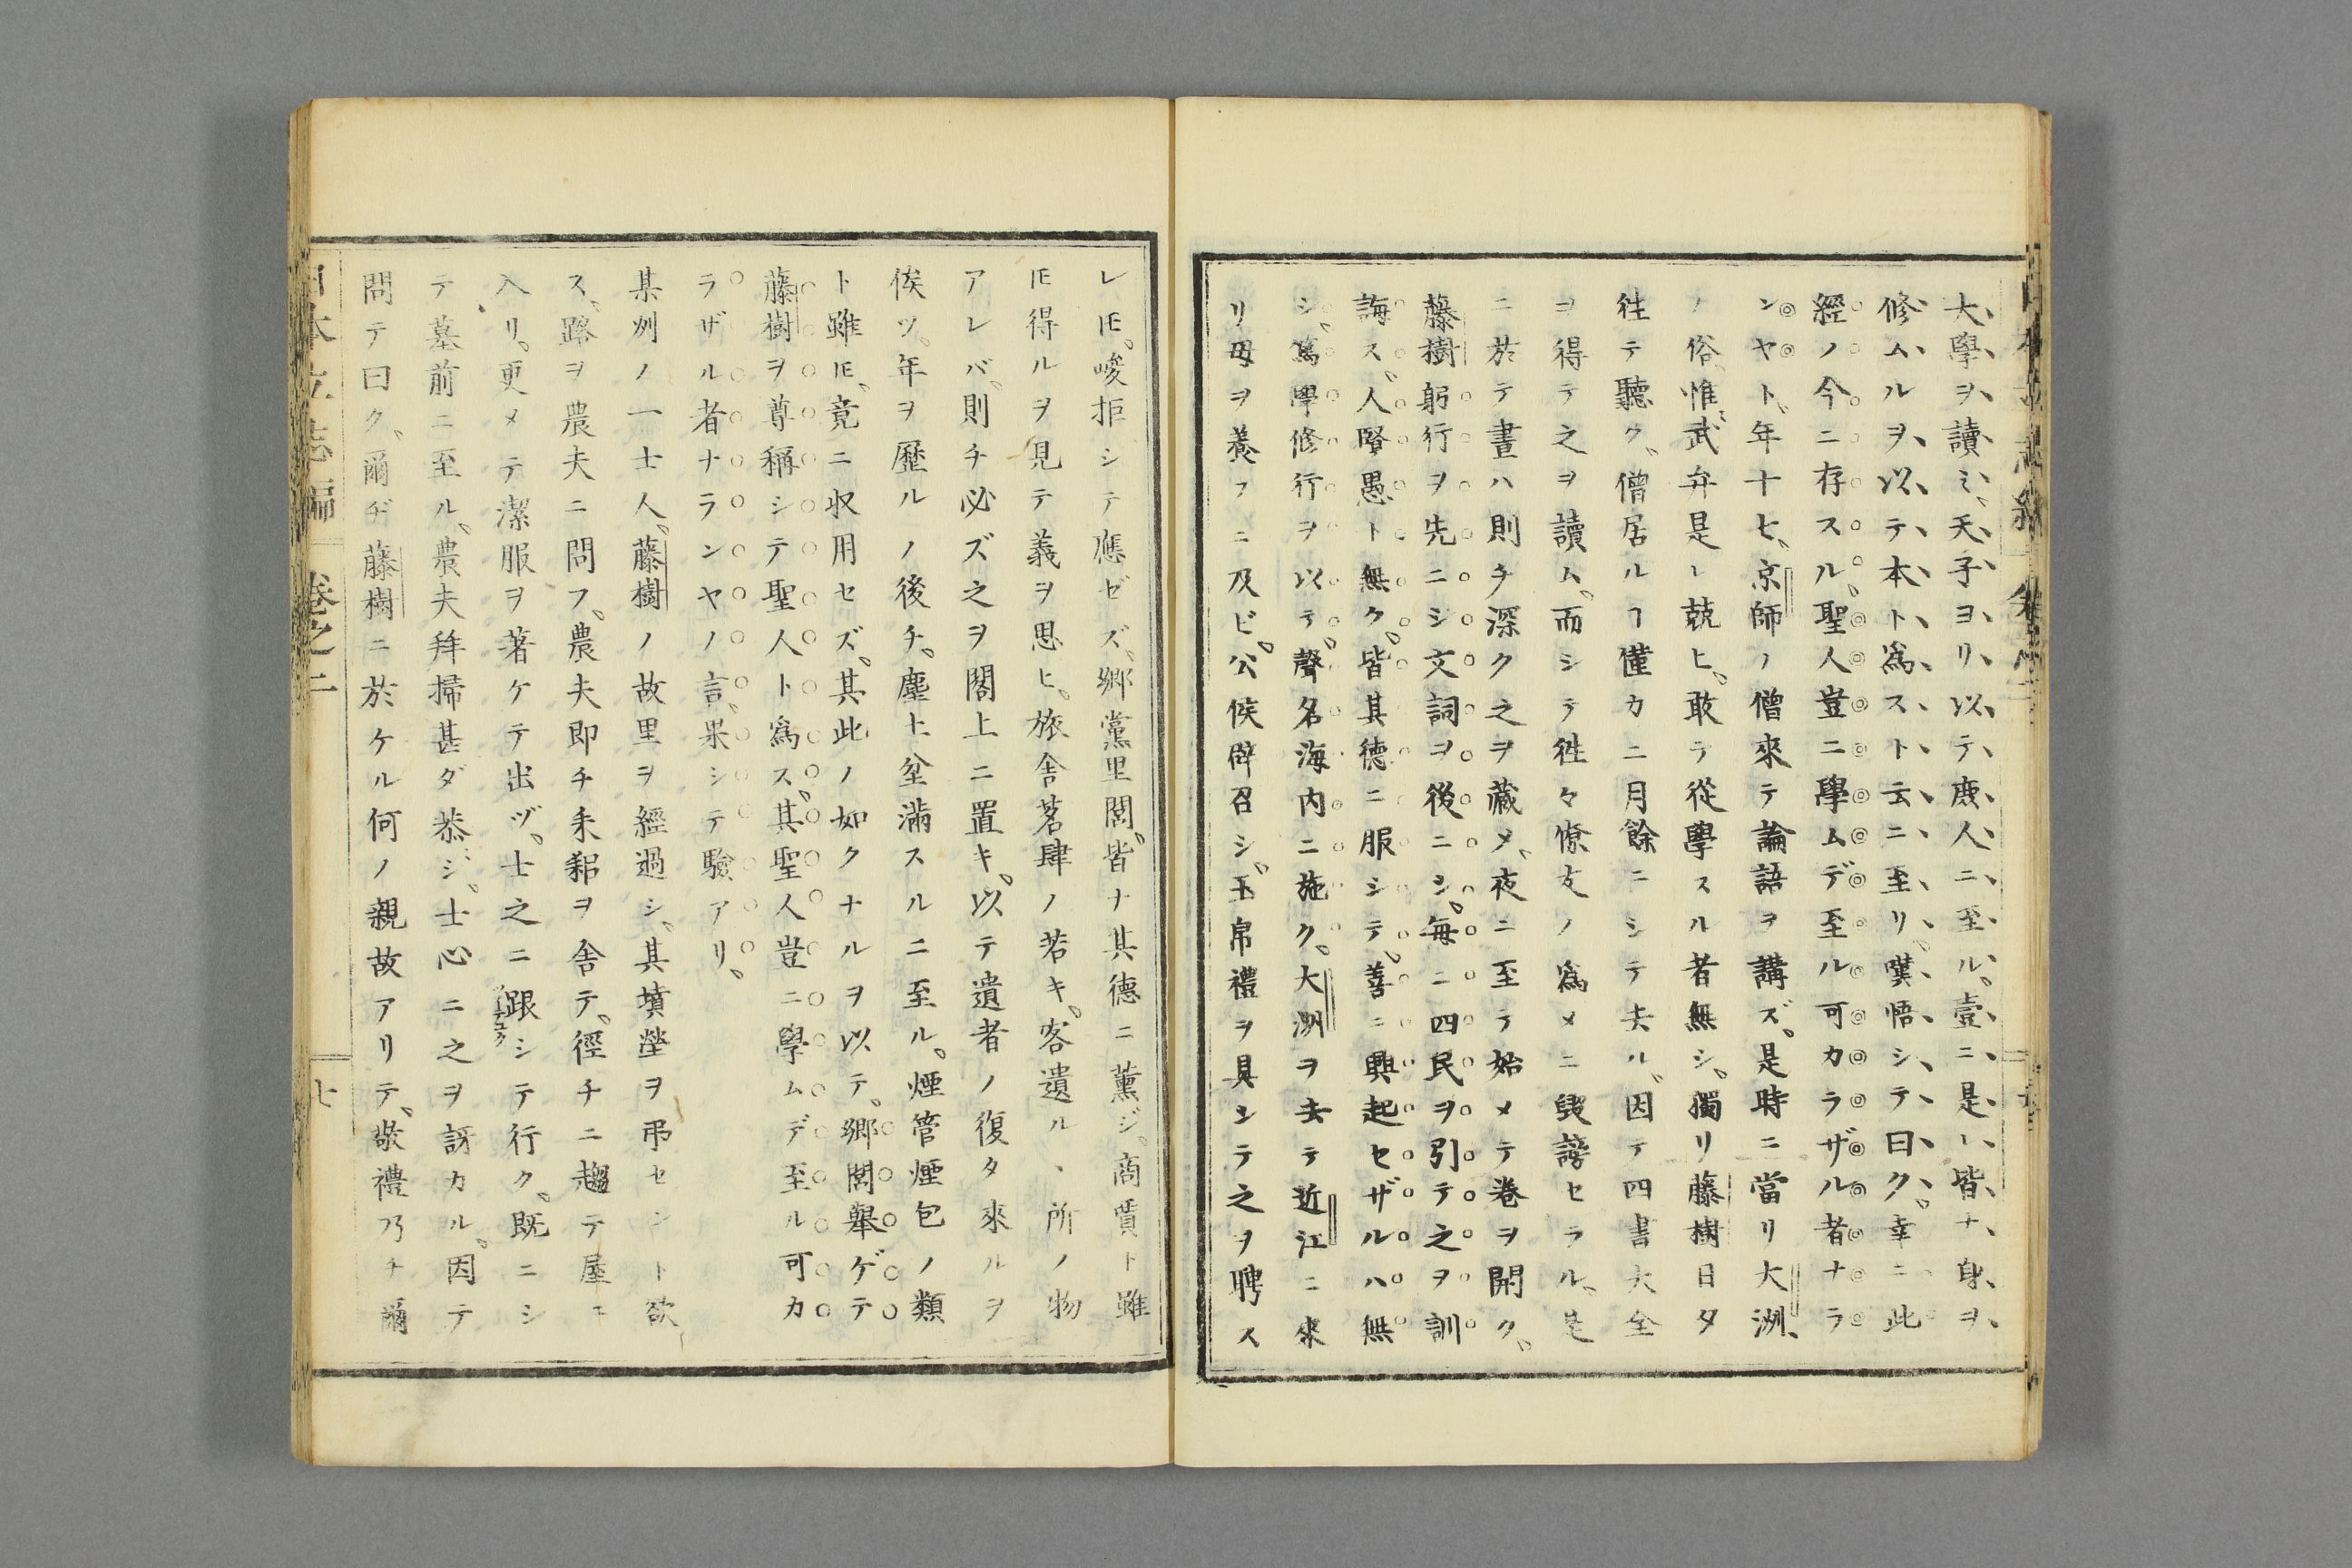 大學ヲ讀ミ、天子ヨリ以テ庶人ニ至ル。壹ニ是レ皆ナ身ヲ
修ムルヲ以テ本ト爲スト云ニ至リ、嘆悟シテ曰ク。幸ニ此
經ノ今ニ存スル、聖人豈ニ學ムデ至ル可カラザル者ナラ
ンヤト、年十七、京師ノ僧來テ論語ヲ講ズ。是時ニ當リ大洲、
ノ俗、惟ミ武弁是レ競ヒ。敢テ從學スル者無シ。獨リ藤樹日タ
徃テ聽ク、僧居ルヿ僅カニ月餘ニシテ去ル、因テ四書大全
ヲ得テ之ヲ讀ム。而シテ徃々僚友ノ爲メニ毀謗セラル、是
ニ於テ晝ハ則チ深ク之ヲ藏メ、夜ニ至テ始メテ卷ヲ開ク、
藤樹躬行ヲ先ニシ文詞ヲ後ニシ。毎ニ四民ヲ引テ之ヲ訓
誨ス、人賢愚ト無ク。皆其德ニ服シテ、善ニ興起セザルハ無
シ、篤學修行ヲ以テ。聲名海内ニ施ク。大洲ヲ去テ近江ニ來
リ母ヲ養フニ及ビ。公侯辟召シ、玉帛禮ヲ具シテ之ヲ聘ス
レ𪜈。峻拒シテ應ゼズ、郷黨里閭。皆ナ其德ニ薫ジ。商賈ト雖
𪜈得ルヲ見テ義ヲ思ヒ。旅舍茗肆ノ若キ。客遺ル、所ノ物
アレバ、則チ必ズ之ヲ閣上ニ置キ、以テ遺者ノ復タ來ルヲ
俟ツ。年ヲ歷ルノ後チ。塵土坌滿スルニ至ル。煙管煙包ノ類
ト雖𪜈、竟ニ収用セズ。其此ノ如クナルヲ以テ、郷閭舉ゲテ
藤樹ヲ尊稱シテ聖人ト爲ス、其聖人豈ニ學ムデ至ル可カ
ラザル者ナランヤノ言、果シテ驗アリ、
某州ノ一士人、藤樹ノ故里ヲ經過シ、其墳塋ヲ弔セント欲
ス、路ヲ農夫ニ問フ。農夫即チ耒耜ヲ舍テ。徑チニ趨テ屋ニ
入リ。更メテ潔服ヲ著ケテ出ヅ。士之ニ跟シテ行ク、既ニシ
テ墓前ニ至ル、農夫拜掃甚ダ恭シ、士心ニ之ヲ訝カル。因テ
問テ曰ク、爾ヂ藤樹ニ於ケル何ノ親故アリテ、敬禮乃チ爾
日本立志編 卷之二 七